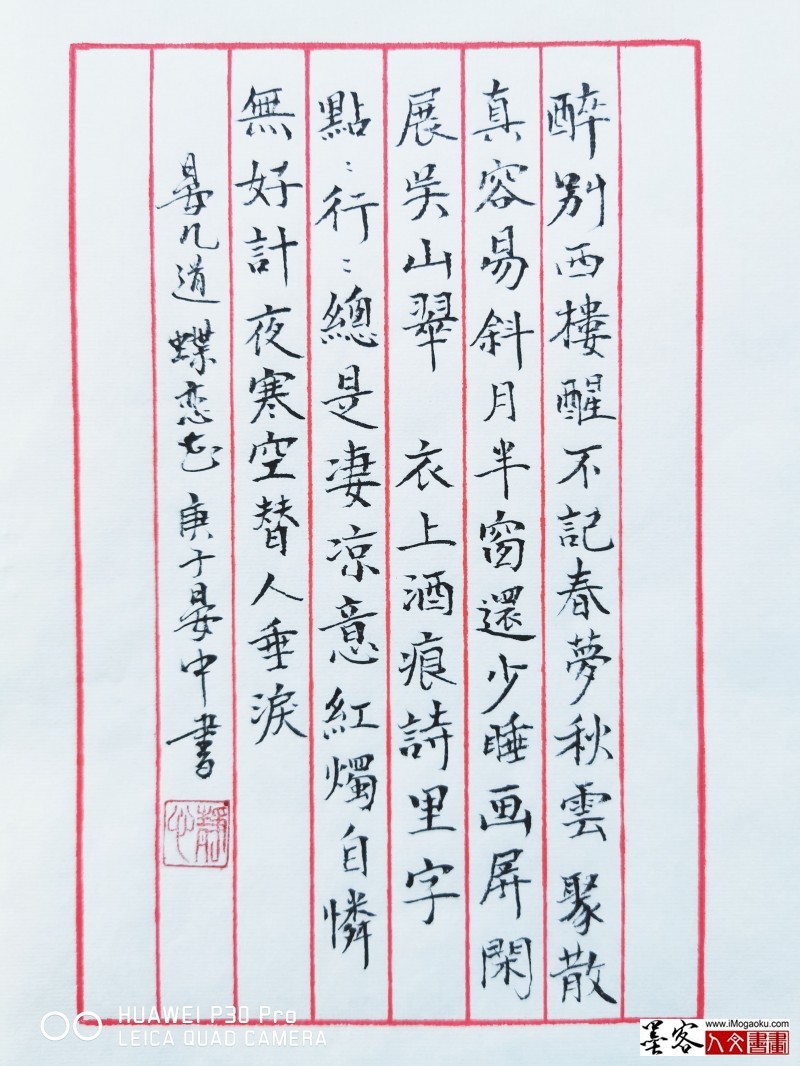 醉别西樓醒不記春夢秋雲聚散
真容易斜月半窗還少睡画屏閑
展吴山翠 衣上酒痕詩里字
點:行:總是凄凉意紅燭自憐
無好計夜寒空替人垂淚
晏几道 蝶恋花 庚子晏中書
靜心
HUAWEI P30 Pro
LEICA QUAD CAMERA
墨客
www.iMogaoku.com
人文書畫